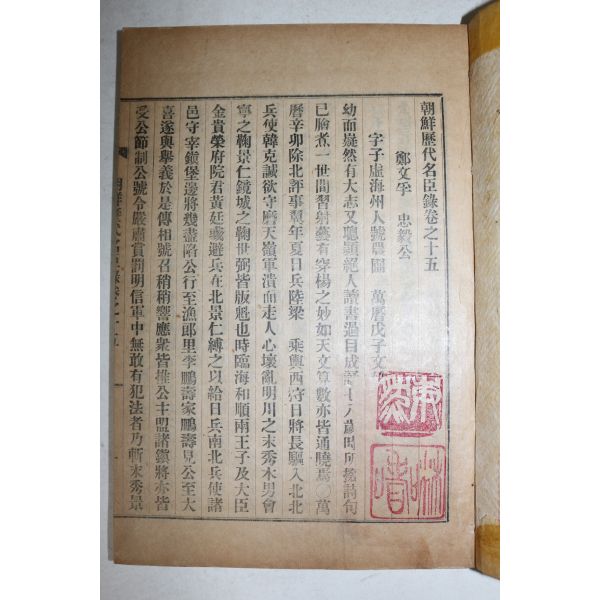 朝鮮歷代名臣錄卷之十五
鄭文孚 忠毅公
字子虛海州人號農圃 萬曆戊子文
幼而嶷然有大志又聰顈絕人讀書過目成誦七八歲時所撰詩句
已膾煮一世間習射藝有穿楊之妙如天文算數亦皆通曉焉 萬
曆辛卯除北評事翼年夏日兵陸梁 乘輿西狩日將長驅入北北
兵使韓克誠欲守磨天嶺軍潰而走人心壞亂明川之末秀木男會
寧之鞠景仁鏡城之鞠世弼皆版魁也時臨海和順兩王子及大臣
金貴榮府院君黃廷彧避兵在北景仁縛之以給日兵南北兵使諸
邑守宰鎭堡邊將幾盡陷公行至漁郞里李鵬壽家鵬壽見公至大
喜遂與擧義於是傳相號召稍稍響應衆皆推公主盟諸鎭將亦皆
受公節制公號令嚴肅賞罰明信軍中無敢有犯法者乃斬末秀景